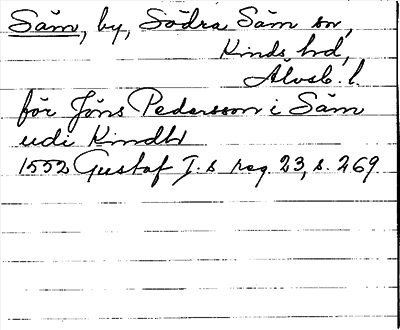 Säm, by, Södra Säm sn,
Kinds hd,
Älvsb. l.
för Jöns Pedersson i Säm
udi Kindhd
1552 Gustaf I:s reg. 23, s. 269